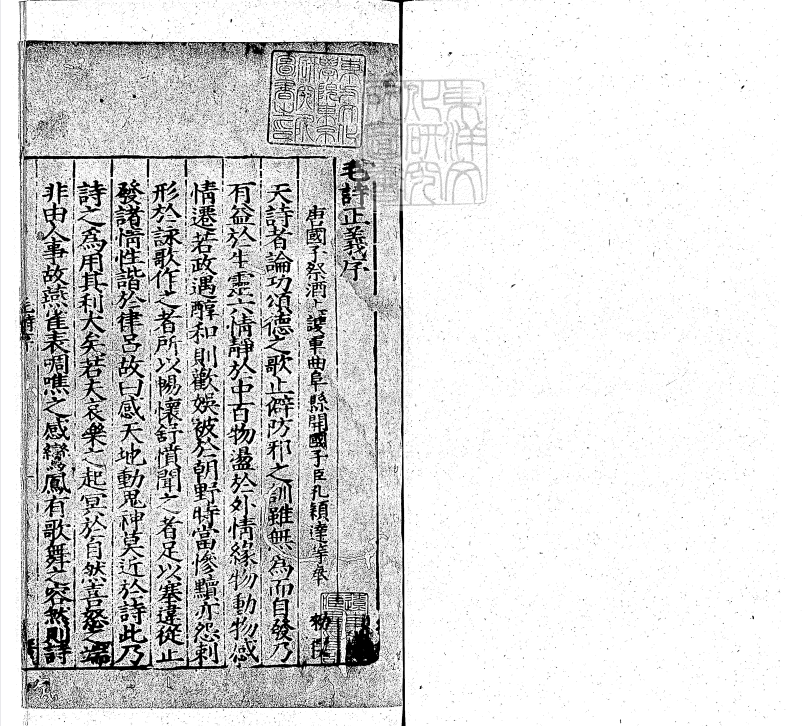 毛詩正義序
唐國子祭酒上護軍曲阜縣開國子臣孔穎達等奉
勑
夫詩者論功頌德之歌止僻防邪之訓雖無為而自發乃
有益於生靈六情靜於中百物盪於外情緣物動物感
情遷若政遇醇和則歡娛被於朝野時當慘黷亦怨刺
形於詠歌作之者所以暢懷舒憤聞之者足以塞違從止
發諸情性諧於律呂故曰感天地動鬼神莫近於詩此乃
詩之為用其利大矣若夫哀樂之起冥於自然喜怒之端
非由人事故燕雀表啁噍之感鸞鳳有歌舞之容然則詩
東洋文化研究